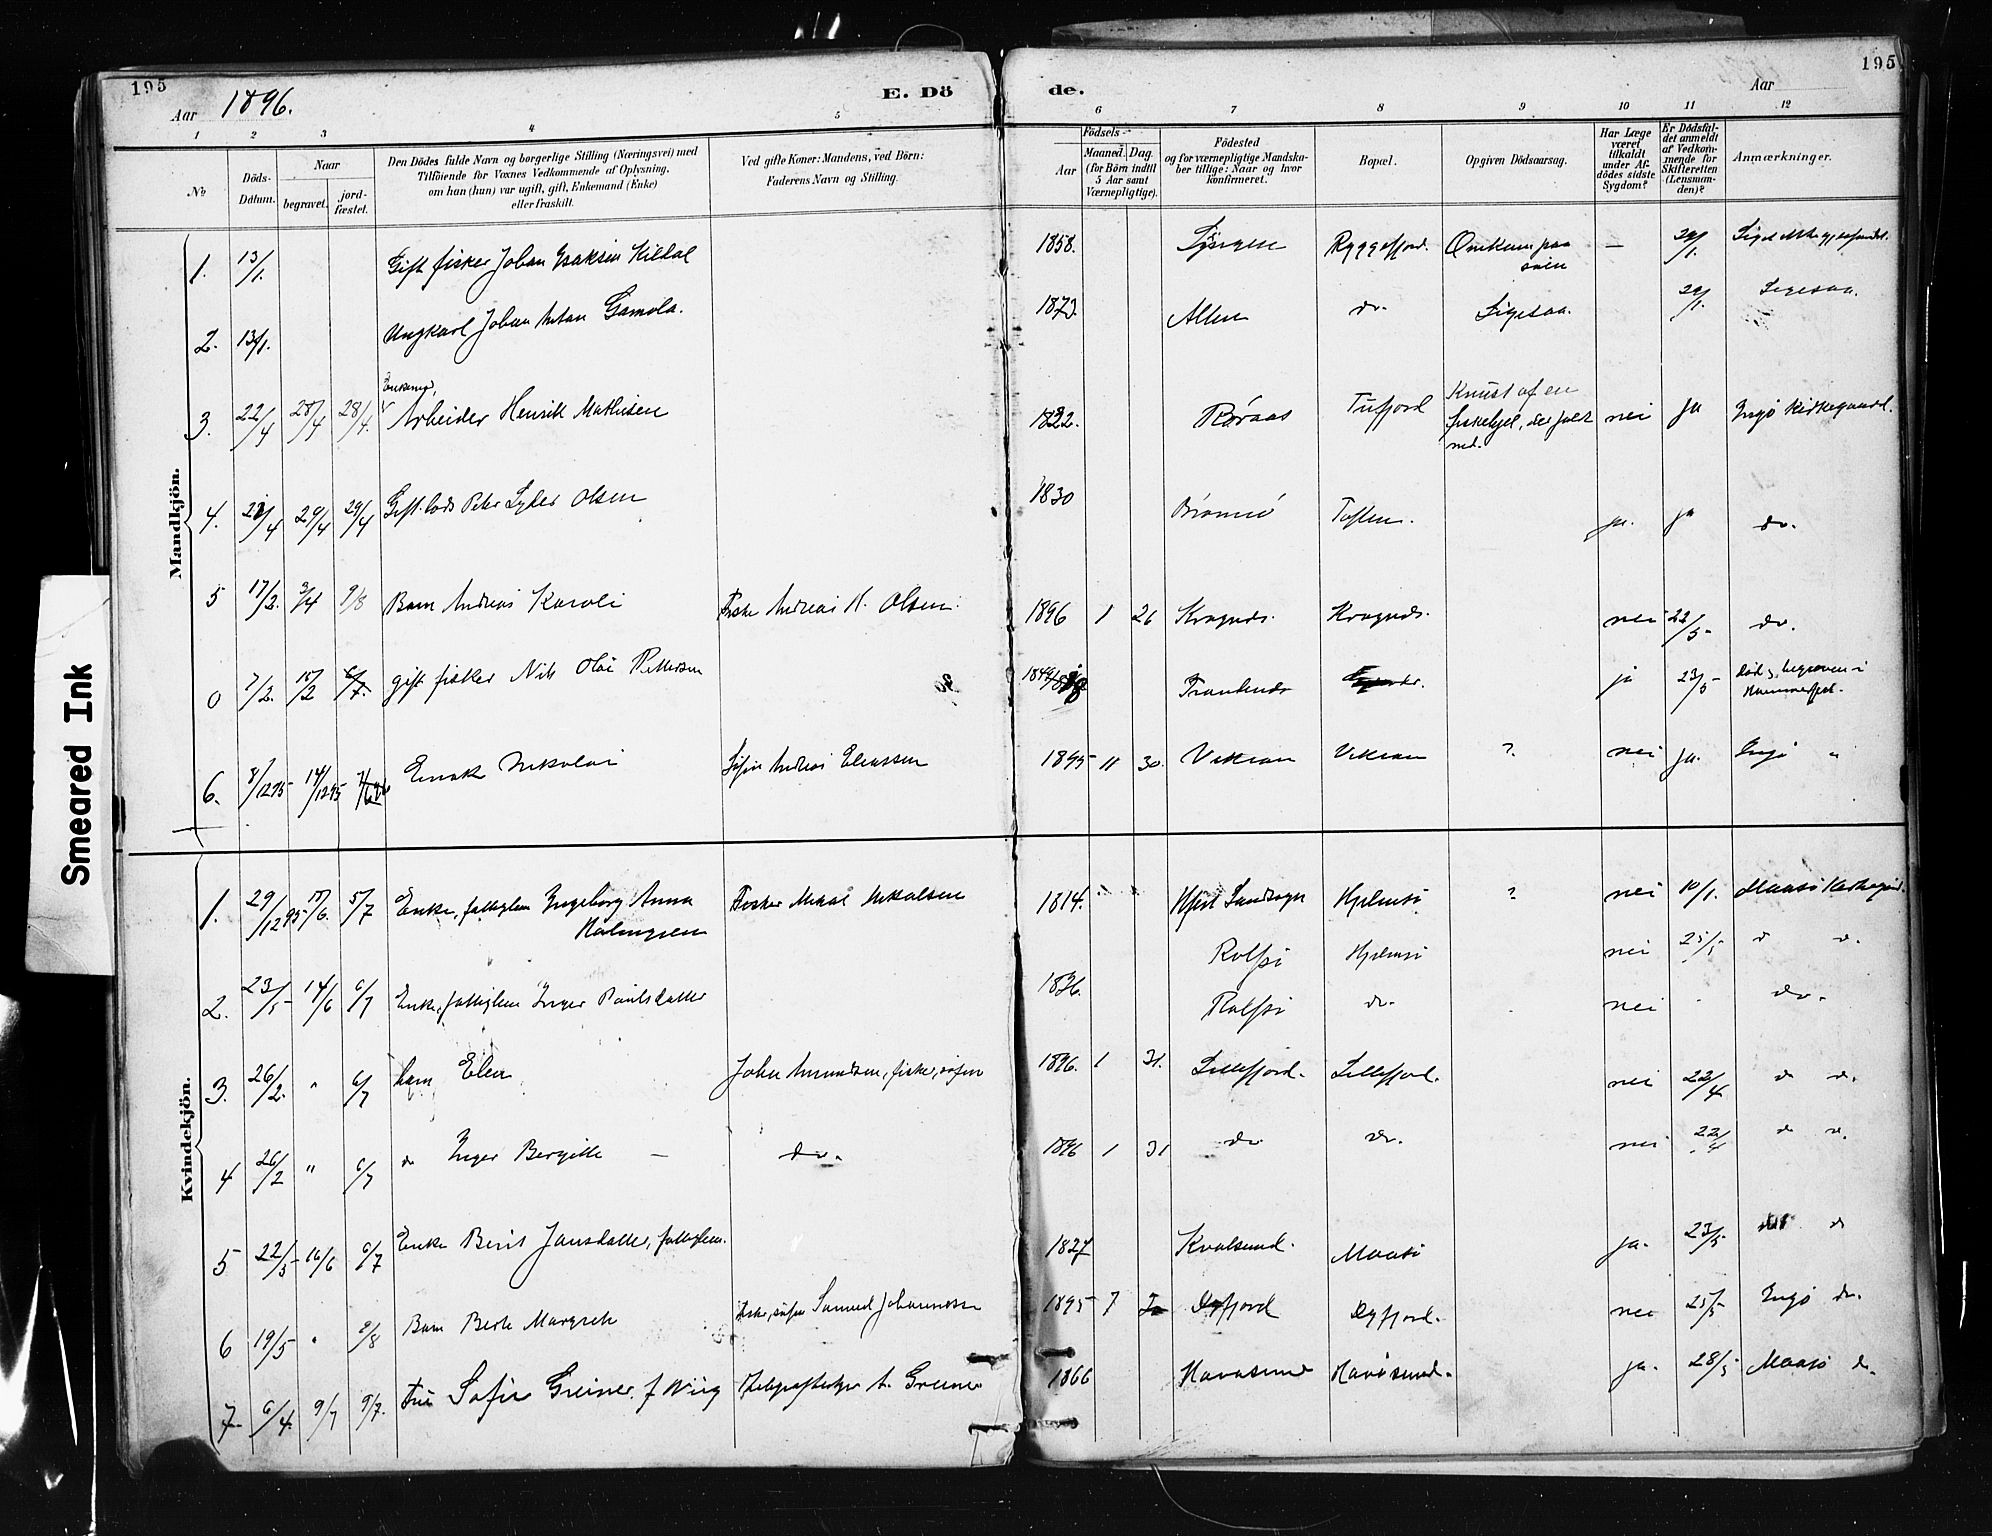 195
195
Aar 1896.
E. Dö
de.
Aar
1 2 3 4 5 6 7 8 9 10 11 12
No
Döds-Datum.
Naar
begravet.
jord-fæstet.
Den Dödes fulde Navn og borgerlige Stilling (Næringsvei) med
Tilföiende for Voxnes Vedkommende af Oplysning,
om han (hun) var ugift, gift, Enkemand (Enke)
eller fraskilt.
Ved gifte Koner: Mandens, ved Börn:
Faderens Navn og Stilling.
Födsels-
Aar
Maaned. Dag.
(for Börn indtil
5 Aar samt
Værnepligtige).
Födested
og for værnepligtige Mandska-
ber tillige: Naar og hvor
konfirmeret.
Bopæl.
Opgiven Dödsaarsag.
Har Læge
været
tilkaldt
under Af-
dödes sidste
Sygdom?
Er Dödsfal-
det anmeldt
af Vedkom-
mende for
Skifteretten
(Lensman-
den)?
Anmærkninger.
Mandkjön.
1. 13/1. Gift fisker Johan Isaksen Kildal 1858. Lyngen Ryggefjord. Omkom paa
søen
— 29/1. Liget ikke gjenfundet.
2. 13/1. Ungkarl Johan Anton Gamola. 1873. Alten do Ligesaa. 29/1. Ligesaa.
Enkemd,
3. 22/4 28/4 28/4. Arbeider Henrik Mathisen 1822. Røraas Tufjord Knust af en
fiskehjel, der faldt
ned.
nei ja Ingø Kirkegaard.
4. 29/4 29/4 Gift. Lods Peter Olsen 1830 Tuften. ja. ja do.
5 17/2. 3/4 9/8 Barn Andreas Karoli Fisker Andreas H. Olsen. 1896 1 26 Kragnæs. Kragnæs. nei 22/5 do.
0 7/2. 15/2 gift fisker Nils Olai Pettersen ja 23/5 død & begraven i
Hammerfest.
6. 8/12 95 14/12 95 Enok Nikolai Andreas Eliassen 1895 11 30. Vikran Vikran ? nei ja. Ingø "
Kvindekjön.
1. 29/12 95 5/7 Enke, fattiglem Ingeborg Anna
Holmgren
Fisker Mikal Mikalsen 1814. Hjelmsø ? nei 10/1. Maasø Kirkegaard.
Rolfsø Hjelmsø nei 25/5 d do.
2. 23/5 14/6 6/7 Enke, fattiglem Inger Poulsdatter 1836. Rolfsø do. nei do.
3. 26/2. " 6/7 barn Elen John Amundsen, fisker, 1896. 1 31. Lillefjord. Lillefjord. nei 22/4 d d.
4 26/2 " 6/7 do Inger Bergitte — do. 1896 1 31 do do. nei 22/4 d d.
5 22/5 16/6 6/7 Enke Berit Jansdatter, fattiglem. 1827 Kvalsund. Maasø ja. 23/5 d
6 19/5 " 9/8 Barn Berit Margrete Samuel Johannesen 1895 7 Dyfjord Dyfjord. nei 25/5 Ingø do.
7. 6/4. 9/7 9/7. Fru Sofie Greiner, f. Wiig Telegrafbestyrer A. Greiner 1866 Havøsund Havøsund. ja. 28/5 Maasø d.
Smeared Ink